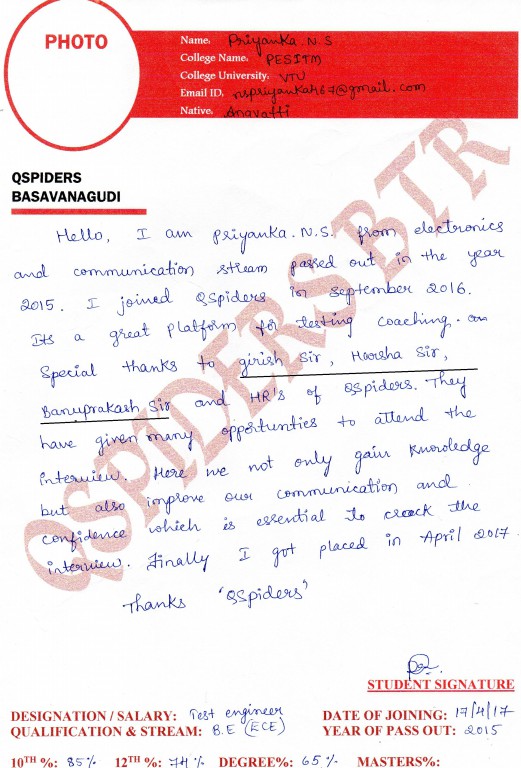 PHOTO
Name: Priyanka. N. S
College Name: PESITM
College University: VTU
Email ID. nspriyankah67@gmail.com
Native: Anavatti
QSPIDERS
BASAVANAGUDI
QSPIDERS BTR
Hello, I am priyanka. N.S. from electronics
and communication stream passed out in the year
2015. I joined QSpiders in September 2016.
Its a great platform for testing coaching.
Special thanks to girish Sir, Harsha Sir,
Banuprakash Sir and HR's of QSpiders. They
have given many opportunities to attend the
interview. Here we not only gain knowledge
but also improve our communication and
confidence which is essential to crack the
interview. Finally I got placed in April 2017.
Thanks 'QSpiders'
STUDENT SIGNATURE
DESIGNATION / SALARY: Test engineer DATE OF JOINING: 17/4/17
QUALIFICATION & STREAM: B.E (ECE) YEAR OF PASS OUT: 2015
10TH %: 85% 12TH %: 74% DEGREE%: 65% MASTERS%: